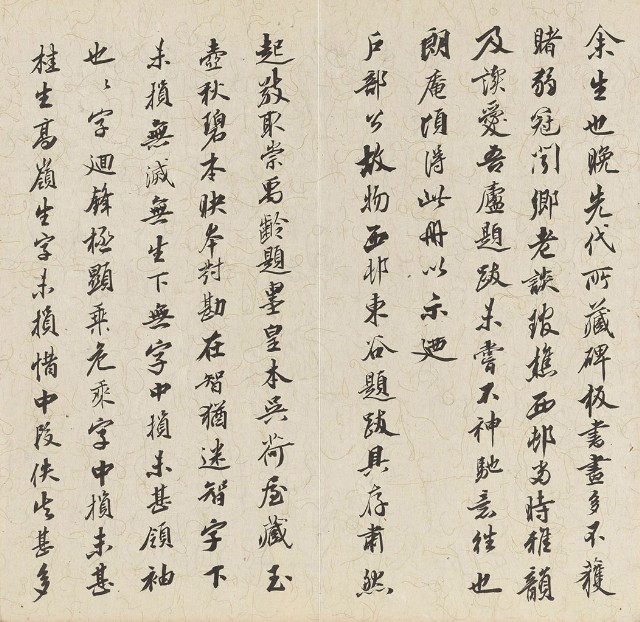 余生也晚先代所藏碑板書畫多不獲
賭弱冠聞鄉老談玻樵西邨當時雅韻
及讀愛吾廬題跋未嘗不神馳意往也
朗庵頃得此冊以示廼
戶部公故物西邨東谷題跋具存肅然
起敬取崇禹齡題墨皇本吳荷屋藏玉
壺秋碧本映本對勘在智猶迷智字下
未損無滅無生下無字中損未甚領袖
也〻字廻鋒極顯乘危乘字中損未甚
桂生高嶺生字未損惜中段佚失甚多